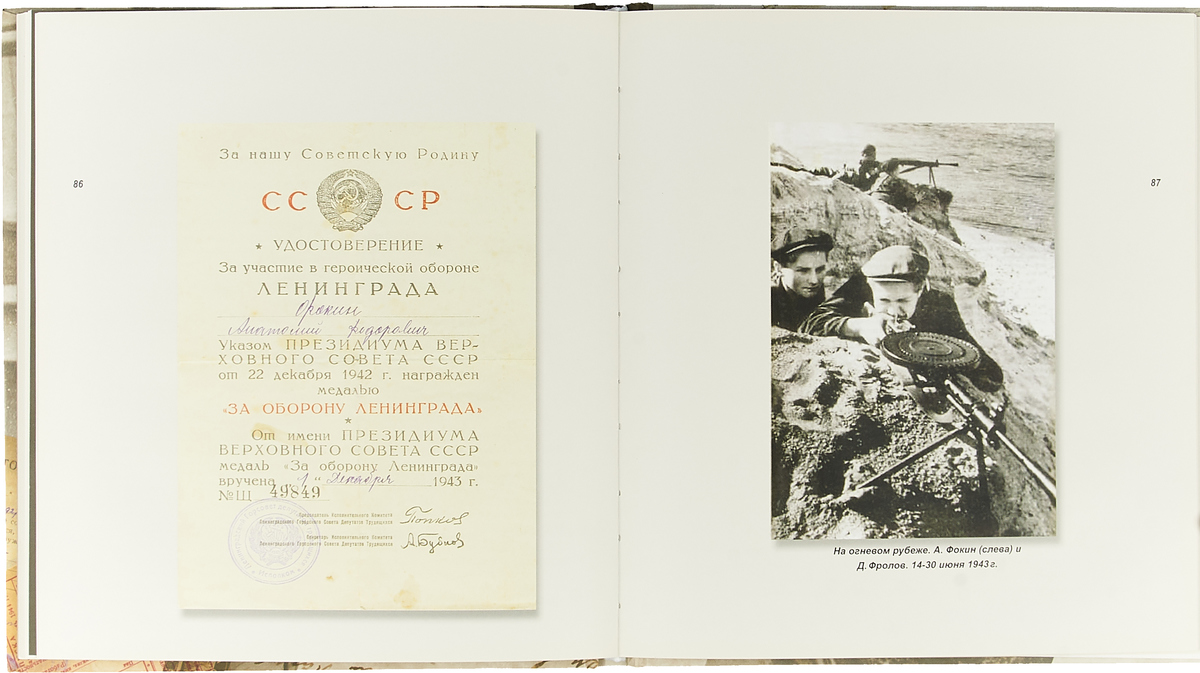 86
За нашу Советскую Родину
СССР
★ УДОСТОВЕРЕНИЕ ★
За участие в героической обороне
ЛЕНИНГРАДА
Фокин
Анатолий Федорович
Указом ПРЕЗИДИУМА ВЕР-
ХОВНОГО СОВЕТА СССР
от 22 декабря 1942 г. награжден
медалью
«ЗА ОБОРОНУ ЛЕНИНГРАДА»
★
От имени ПРЕЗИДИУМА
ВЕРХОВНОГО СОВЕТА СССР
медаль «За оборону Ленинграда»
вручена „1" декабря 1943 г.
№ Щ 49849
Председатель Исполнительного Комитета
Ленинградского Городского Совета Депутатов Трудящихся
Попков
Секретарь Исполнительного Комитета
Ленинградского Городского Совета Депутатов Трудящихся
А Бубнов
87
На огневом рубеже. А. Фокин (слева) и
Д. Фролов. 14-30 июня 1943 г.